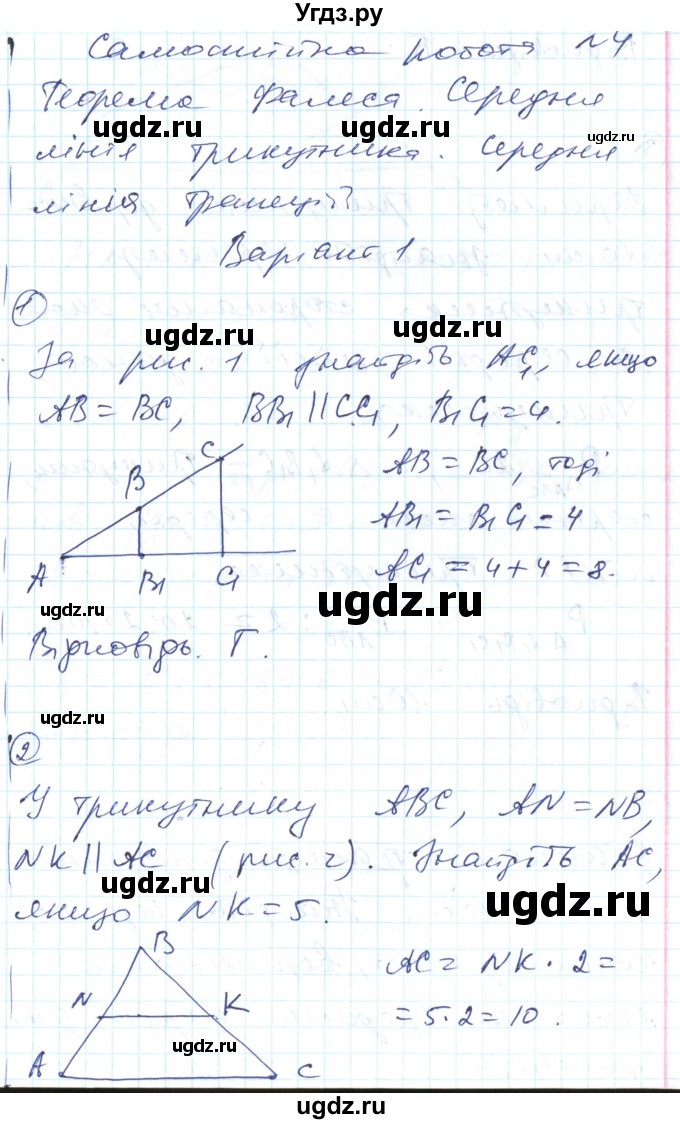 Угдз.ру
Самостійна робота №4
Теорема Фалеса. Середня
лінія трикутника. Середня
лінія трапеції
Варіант 1
1
За рис. 1 знайдіть AC₁, якщо
AB = BC, BB₁ || CC₁, B₁C₁ = 4.
AB = BC, тоді
AB₁ = B₁C₁ = 4
AC₁ = 4 + 4 = 8.
A B C B₁ C₁
Відповідь. Г.
2
У трикутнику ABC, AN = NB,
NK || AC (рис. 2). Знайдіть AC,
якщо NK = 5.
AC = NK · 2 =
= 5 · 2 = 10.
B
N K
A C
ugdz.ru
ugdz.ru
ugdz.ru
ugdz.ru
ugdz.ru
ugdz.ru
ugdz.ru
ugdz.ru
ugdz.ru
ugdz.ru
ugdz.ru
ugdz.ru
ugdz.ru